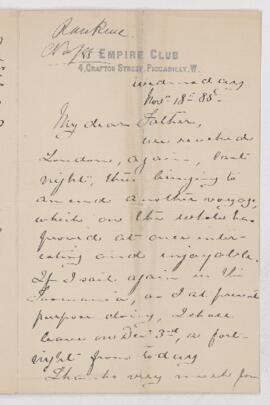 Rankine
EMPIRE CLUB
4, GRAFTON STREET, PICCADILLY, W.
Wednesday
Nov. 18th 85.
My dear Father,
We reached
London, again, last
night, thus bringing to
an end another voyage,
which on the whole has
proved at once inter-
esting and enjoyable.
If I sail again in the
as I at present
purpose doing, I shall
leave on Dec 3rd, a fort-
night from today
Thanks very much for